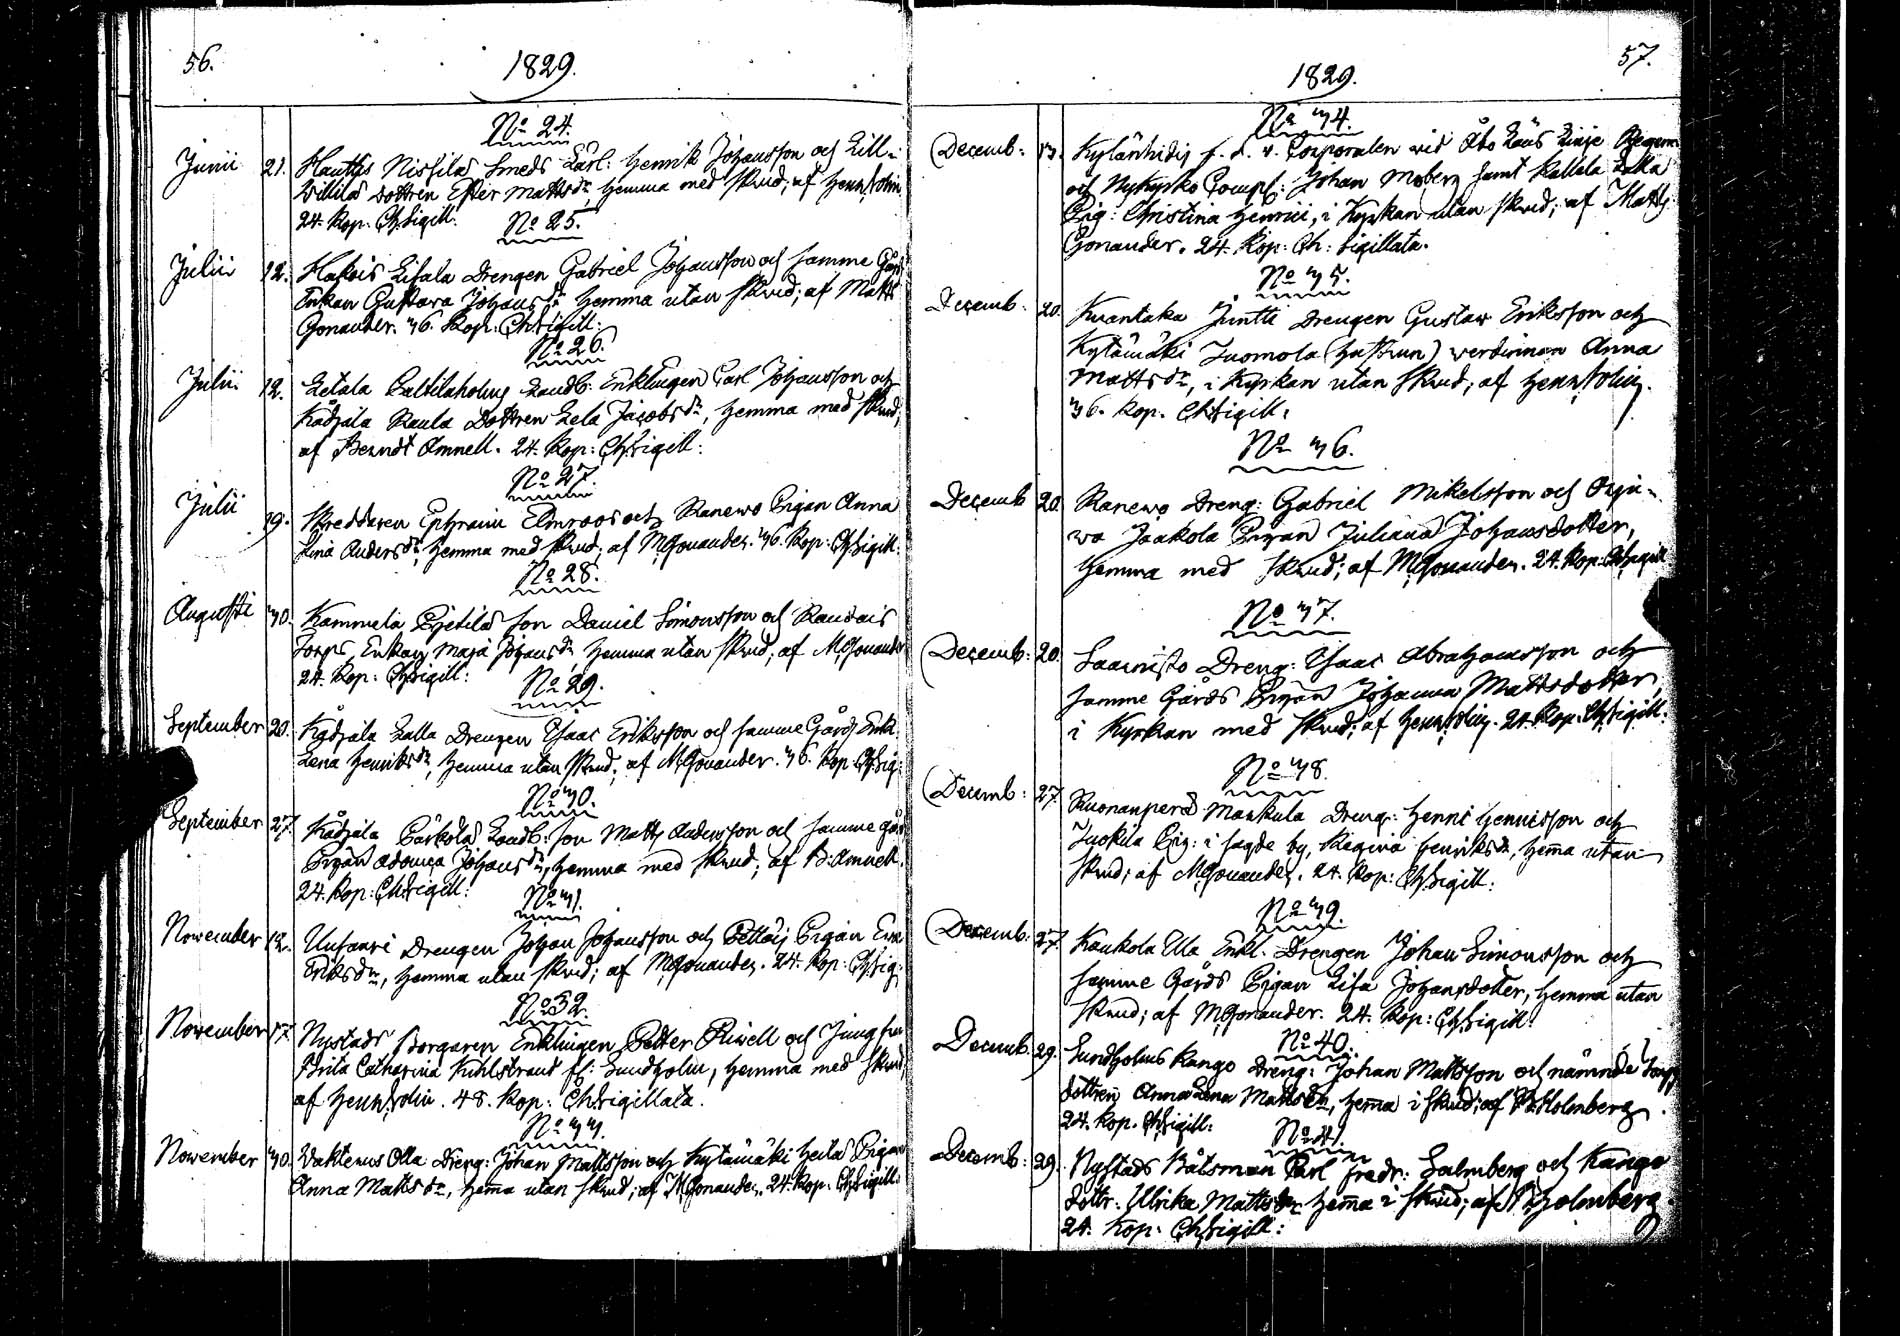 56.
1829.
No 24.
Junii 21. Hauttis Nissilä Smeds Karl: Henrik Johansson och
dottren Ester Mattsdr, hemma med Skrud; af Henr: Polin
24. Kop: Ch. Sigill:
No 25.
Julii 12. Eisala Drengen Gabriel Johansson och samme Gårds
Enkan Gustava Johansdr hemma utan Skrud; af Matts
Gonander. 36. Kop: Ch. Sigill:
No 26.
Julii 12. Landb: Enklingen Carl Johansson och
Kådjala Raula Dottren Lela Jacobsdr, hemma med Skrud;
af Berndt Amnell. 24. Kop: Ch. Sigill:
No 27.
Julii 19. Skreddaren Ephraim Elmroos och Ranewo Pigan Anna
Lina Andersdr, hemma med Skrud; af M. Gonander. 36. Kop: Ch. Sigill:
No 28.
Augusti 30. Kammela Pietilä Son Daniel Simonsson och
Torps Enkan Maja Johansdr, hemma utan Skrud; af M. Gonander
24. Kop: Ch. Sigill:
No 29.
September 20. Kådjala Lalla Drengen Isaac Eriksson och samme Gårds Enk:
Lena Henriksdr, hemma utan Skrud; af M. Gonander. 36. Kop. Ch. Sig:
No 30.
September 27. Kådjala Landb: Son Matts Andersson och samme går
Pigan Adamga Johansdr, hemma med Skrud; af B. Amnell.
24. Kop: Ch. Sigill:
No 31.
November 12. Drengen Johan Johansson och Pigan
Eriksdr, hemma utan Skrud; af M. Gonander. 24. Kop: Ch. Sig:
No 32.
November 17. Nystads Borgaren Enklingen Petter Riwell och Jungfru
Brita Catharina Kuhlstrand fr: Sundholm, hemma med Skrud,
af Henr: Polin. 48. Kop: Ch. Sigillata.
No 33.
November 30. Olla Dreng: Johan Mattsson och Kytämäki Heilä Pigan
Anna Mattsdr, hema utan Skrud; af M. Gonander. 24. Kop: Ch. Sigill:
57.
1829.
No 34.
Decemb: 13. f. d. v. Corporalen vid Åbo Läns Linje Regem:
och Nykyrko Comp: Johan Moberg samt Kallela
Pig: Christina Henrici, i Kyrkan utan Skrud; af Matts
Gonander. 24. Kop: Ch: Sigillata.
No 35.
Decemb: 20. Kuantaka Juntti Drengen Gustaw Eriksson och
Kytämäki Juomola (Hustrun) werdinnan Anna
Mattsdr, i Kyrkan utan Skrud; af Henr: Polin.
36. Kop. Ch. Sigill:
No 36.
Decemb 20. Ranewo Dreng: Gabriel Mikelsson och
wa Jaakola Pigan Juliana Johansdotter,
hemma med Skrud; af M. Gonander. 24. Kop: Ch. Sigill
No 37.
Decemb: 20. Saaristo Dreng: Isaac Abrahamsson och
samme Gårds Pigan Johanna Mattsdotter,
i Kyrkan med Skrud; af Henr: Polin. 24. Kop. Ch. Sigill:
No 38.
Decemb: 27. Ruonanperä Mankula Dreng: Henric Henricsson och
Pig: i sagde by, Regina Henriksdr, hema utan
Skrud; af M. Gonander. 24. Kop: Ch. Sigill:
No 39.
Decemb: 27. Kaukola Ulla Enkl. Drengen Johan Simonsson och
samme Gårds Pigan Lisa Johansdotter, hemma utan
Skrud; af M. Gonander. 24. Kop: Ch. Sigill:
No 40.
Decemb. 29. Sundholms Kango Dreng: Johan Mattsson och nämnde Torps
dottren Anna Lena Mattsdr, hema i Skrud; af B. Holmberg.
24. Kop. Ch. Sigill:
No 41.
Decemb: 29. Nystads Båtsman Carl Fredr: Salmberg och Kango
dottr: Ulrika Mattsdr hema i Skrud; af B. Holmberg.
24. Kop. Ch. Sigill: